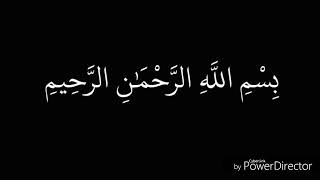 بِسْمِ اللَّهِ الرَّحْمَٰنِ الرَّحِيمِ
CyberLink
by PowerDirector